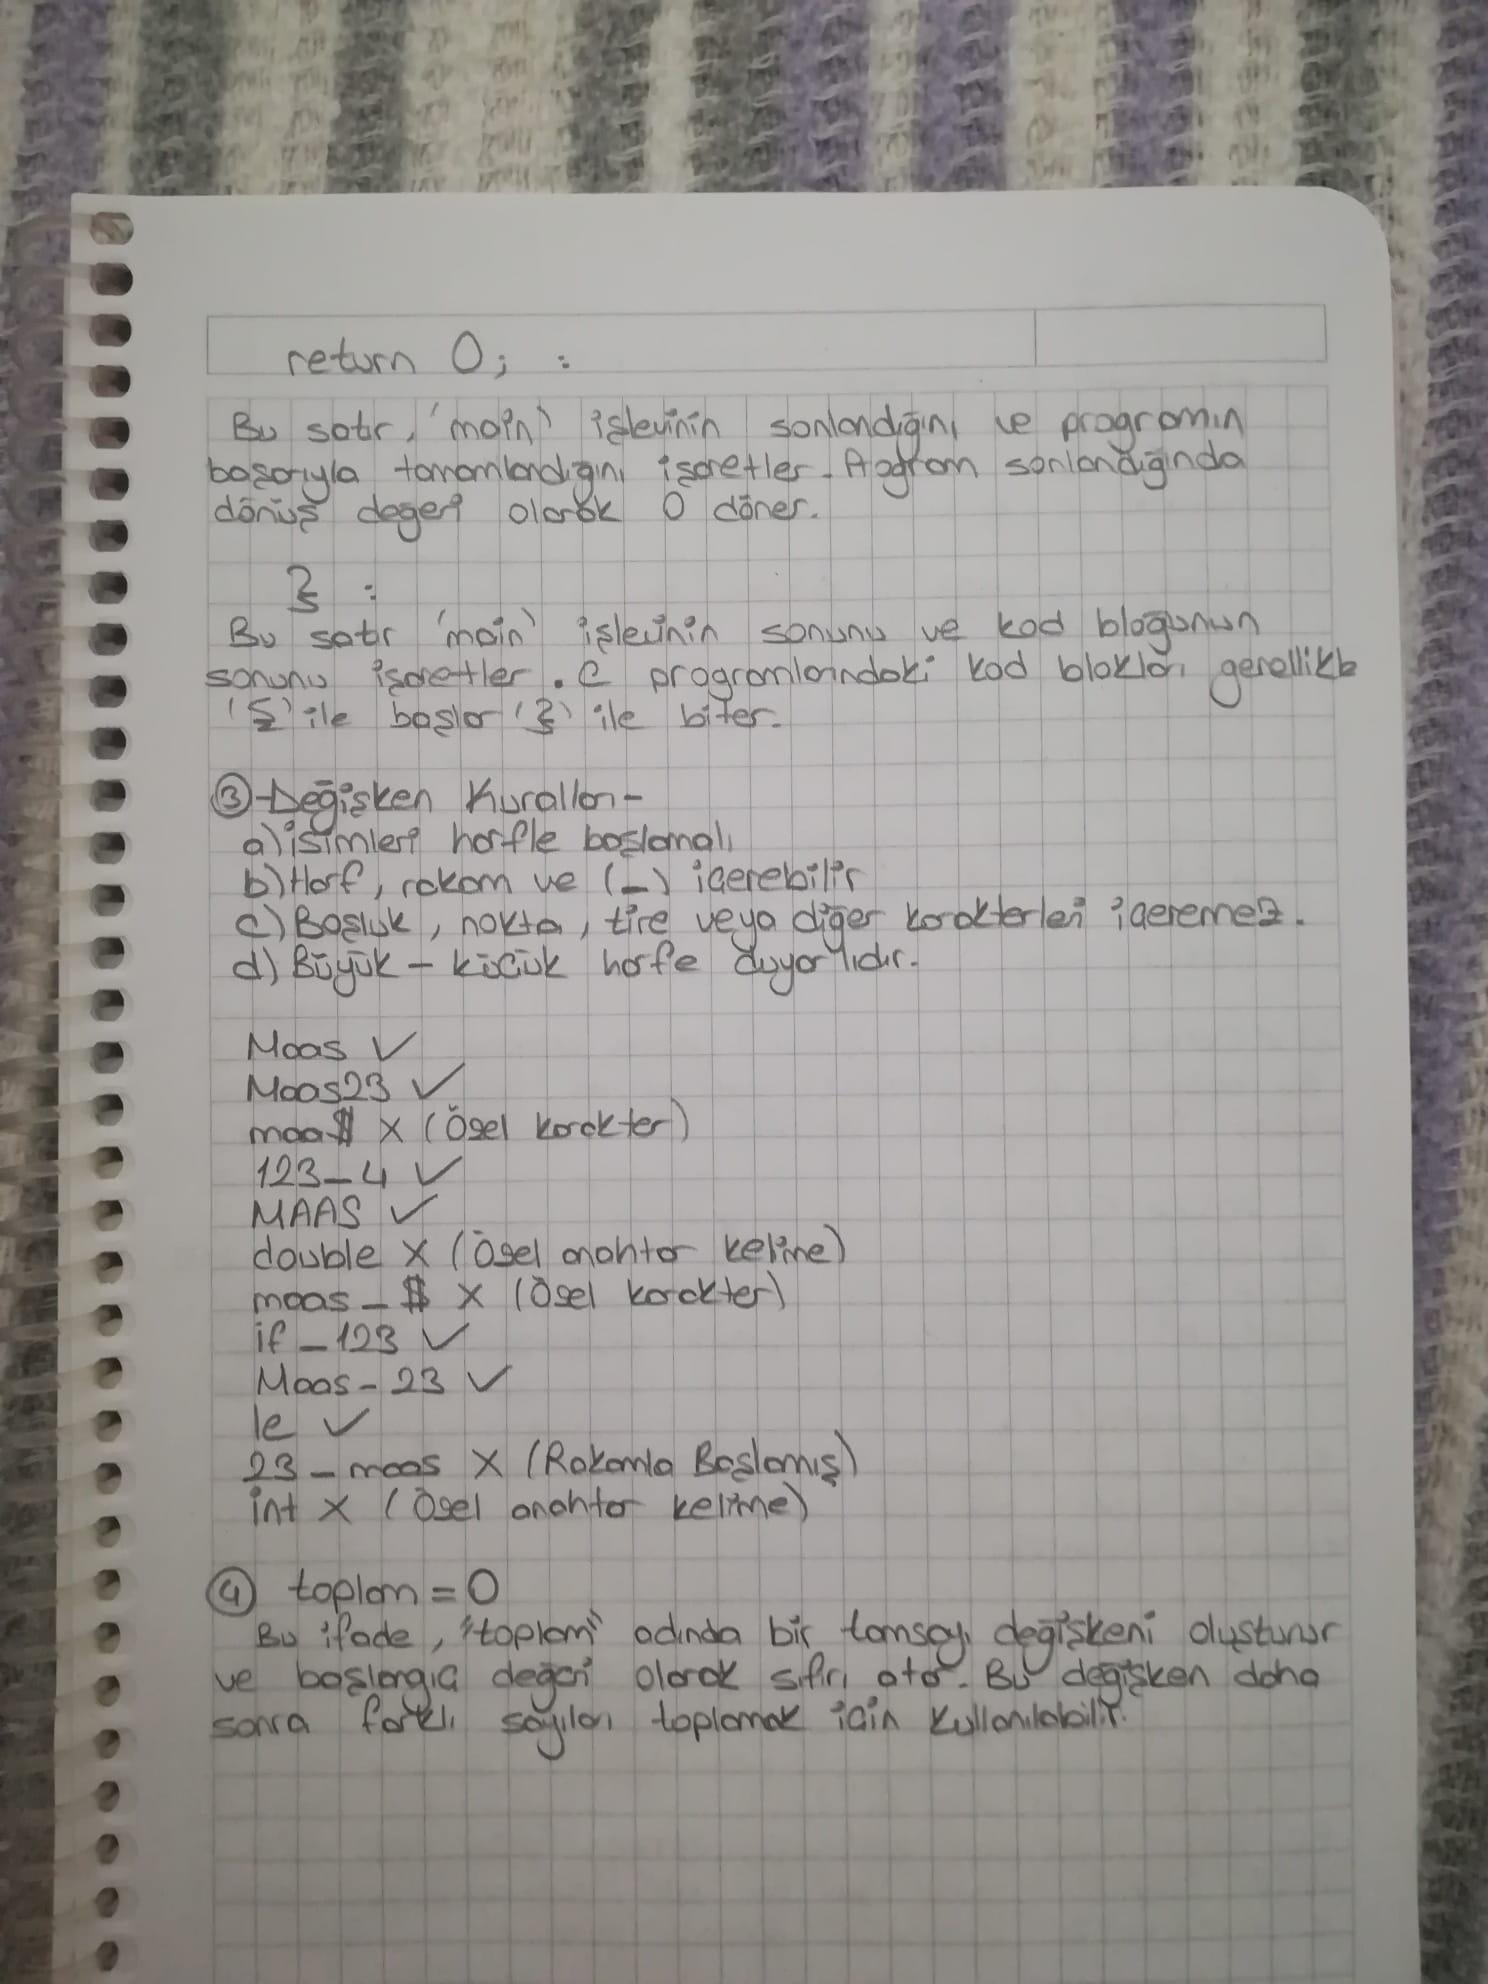 return 0; :
Bu satır, 'main' işlevinin sonlandığını ve programın
başarıyla tamamlandığını işaretler. Program sonlandığında
dönüş değeri olarak 0 döner.
} :
Bu satır 'main' işlevinin sonunu ve kod bloğunun
sonunu işaretler. C programlarındaki kod blokları genellikle
'{' ile başlar '}' ile biter.
③-Değişken Kuralları-
a) isimleri harfle başlamalı
b) Harf, rakam ve (_) içerebilir
c) Boşluk, nokta, tire veya diğer karakterleri içeremez.
d) Büyük - küçük harfe duyarlıdır.
Maas ✓
Maas23 ✓
maa$ X (Özel karakter)
123_4 ✓
MAAS ✓
double X (Özel anahtar kelime)
maas_$ X (Özel karakter)
if_123 ✓
Maas_23 ✓
le ✓
23_maas X (Rakamla Başlamış)
int X (Özel anahtar kelime)
④ toplam = 0
Bu ifade, "toplam" adında bir tamsayı değişkeni oluşturur
ve başlangıç değeri olarak sıfırı atar. Bu değişken daha
sonra farklı sayıları toplamak için kullanılabilir.